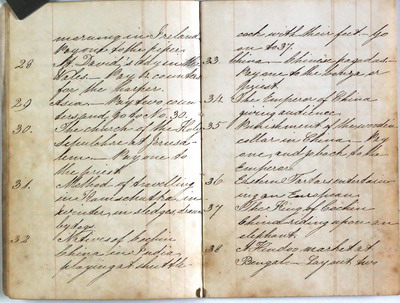 morning in Ireland
Pay one to the piper.
28 St. David's day in
Wales Pay 2 counters
for the harper.
29 Asia Pay two coun
ters and go to No. 30.
30. The church of the Holy
Sepulchre at Jerusa-
lem. Pay one to
the priest
31. Method of travelling
in Kamschatka in
winter, in sledges drawn
by dogs.
32 Natives of Cochin
China in India
playing at shuttle-
cock with their feet. Go
on to 37.
33 China. Chinese pagodas.
Pay one to the bonza or
priest.
34. The Emperor of China
giving audience.
35 Punishment of the wooden
collar in China. Pay
one, and go back to the
Emperor
36 Eastern Tartars entertain-
ing an European
37 The King of Cochin
China riding upon an
elephant.
38 A Hindoo market at
Bengal. Lay out two